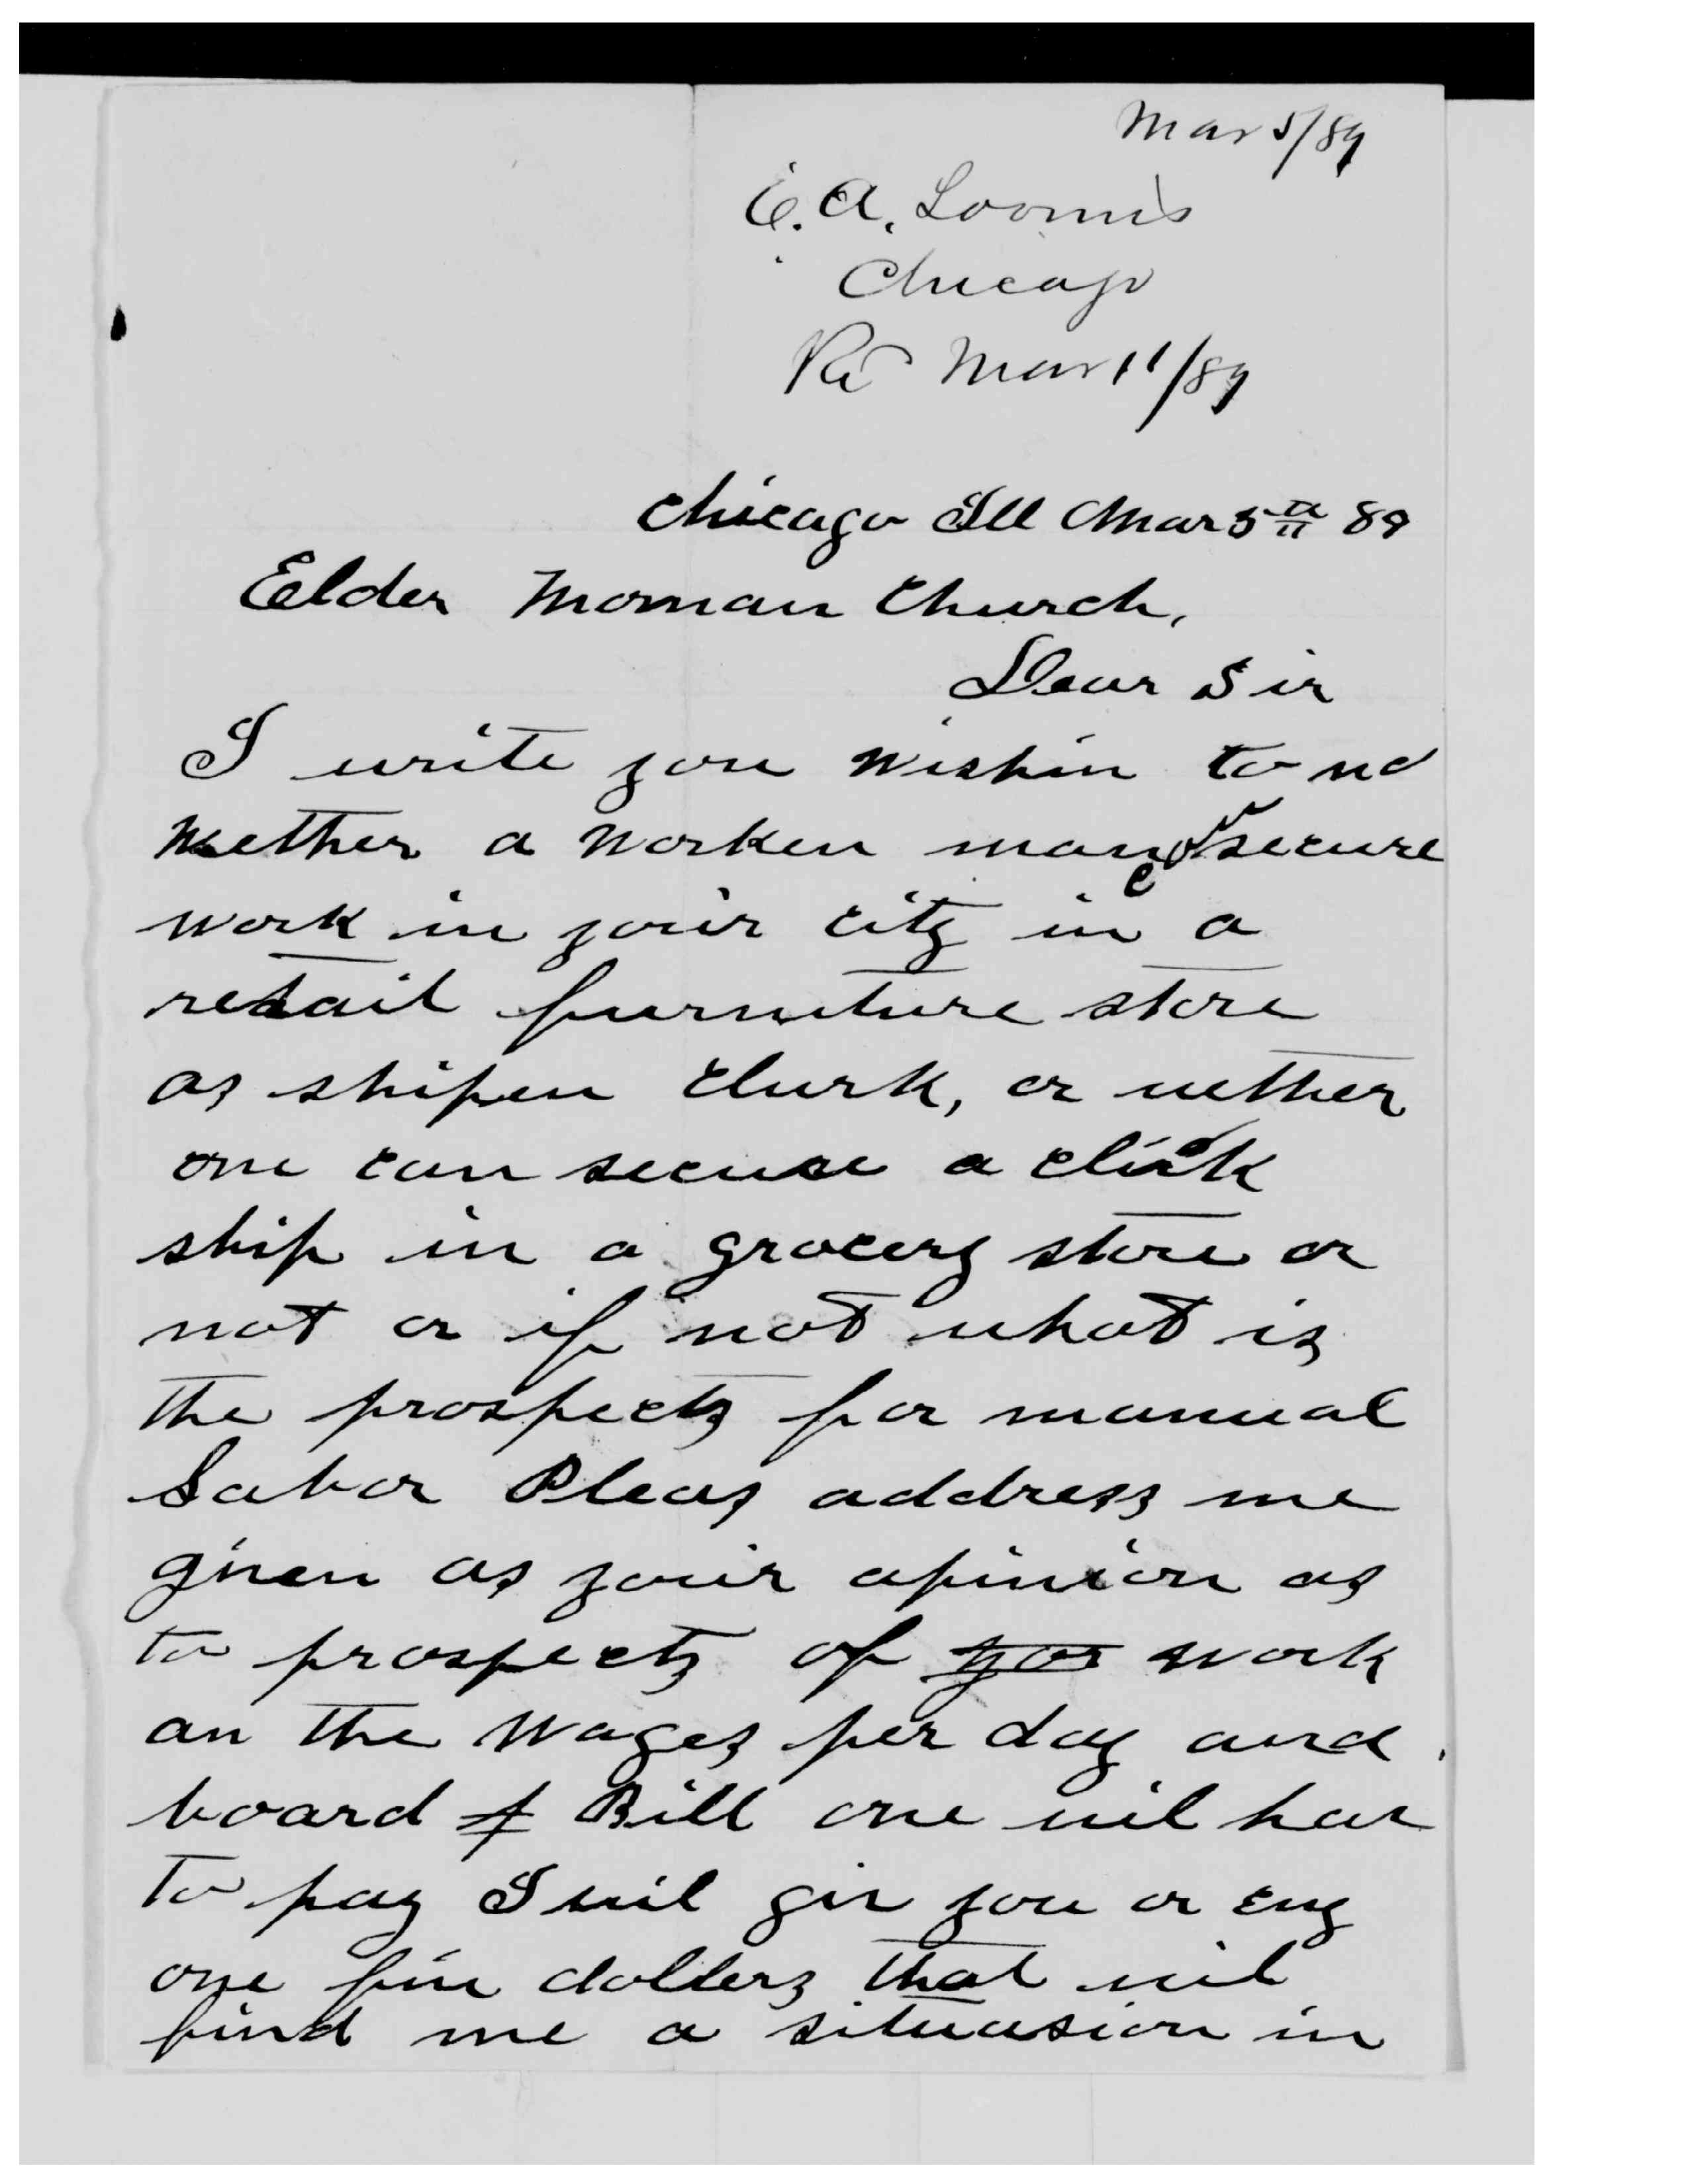 Mar 5/89
E. A. Loomis
Chicago
Rd Mar 11/89
Chicago Ill Mar 5th 89
Elder Morman Church,
Dear Sir
I write you wishin to no
wether a worken man secure
work in your city in a
retail furneture store
as shipen clurk, or wether
one can secure a clirk
ship in a grocery store or
not or if not what is
the prospects for manual
Labor Pleas address me
given as your opinion as
to prospects of work
an the wages per day and
board Bill one wil hav
to pay I wil giv you or eny
one fiv dollers that wil
find me a situasion in